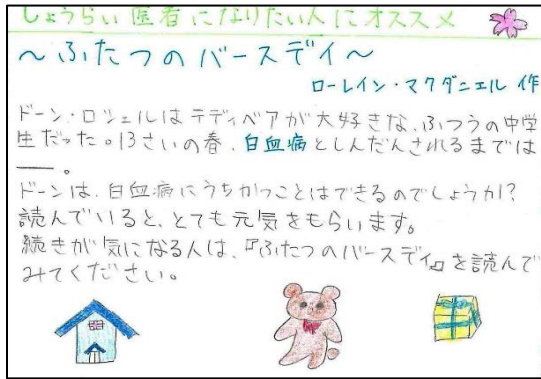 しょうらい医者になりたい人にオススメ
～ふたつのバースデイ～
ローレイン・マクダニエル 作
ドーン・ロシェルはテディベアが大好きな、ふつうの中学
生だった。13さいの春、白血病としんだんされるまでは
――。
ドーンは、白血病にうちかつことはできるのでしょうか!?
読んでいると、とても元気をもらいます。
続きが気になる人は、『ふたつのバースデイ』を読んで
みてください。